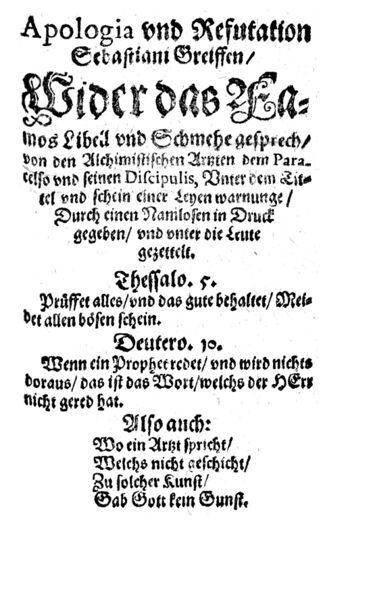 Apologia vnd Refutation
Sebastiani Greiffen/
Wider das Fa-
mos Libell vnd Schmehe gesprech/
von den Alchimistischen Artzten dem Para-
celso vnd seinen Discipulis, Vnter dem Tit-
tel vnd schein einer Leyen warnunge/
Durch einen Namlosen in Druck
gegeben/ vnd vnter die Leute
gezettelt.
Thessalo. 5.
Prüffet alles/ vnd das gute behaltet/ Mei-
det allen bösen schein.
Deutero. 10.
Wenn ein Prophet redet/ vnd wird nichts
doraus/ das ist das Wort/ welchs der HErr
nicht gered hat.
Also auch:
Wo ein Artzt spricht/
Welchs nicht geschicht/
Zu solcher Kunst/
Gab Gott kein Gunst.